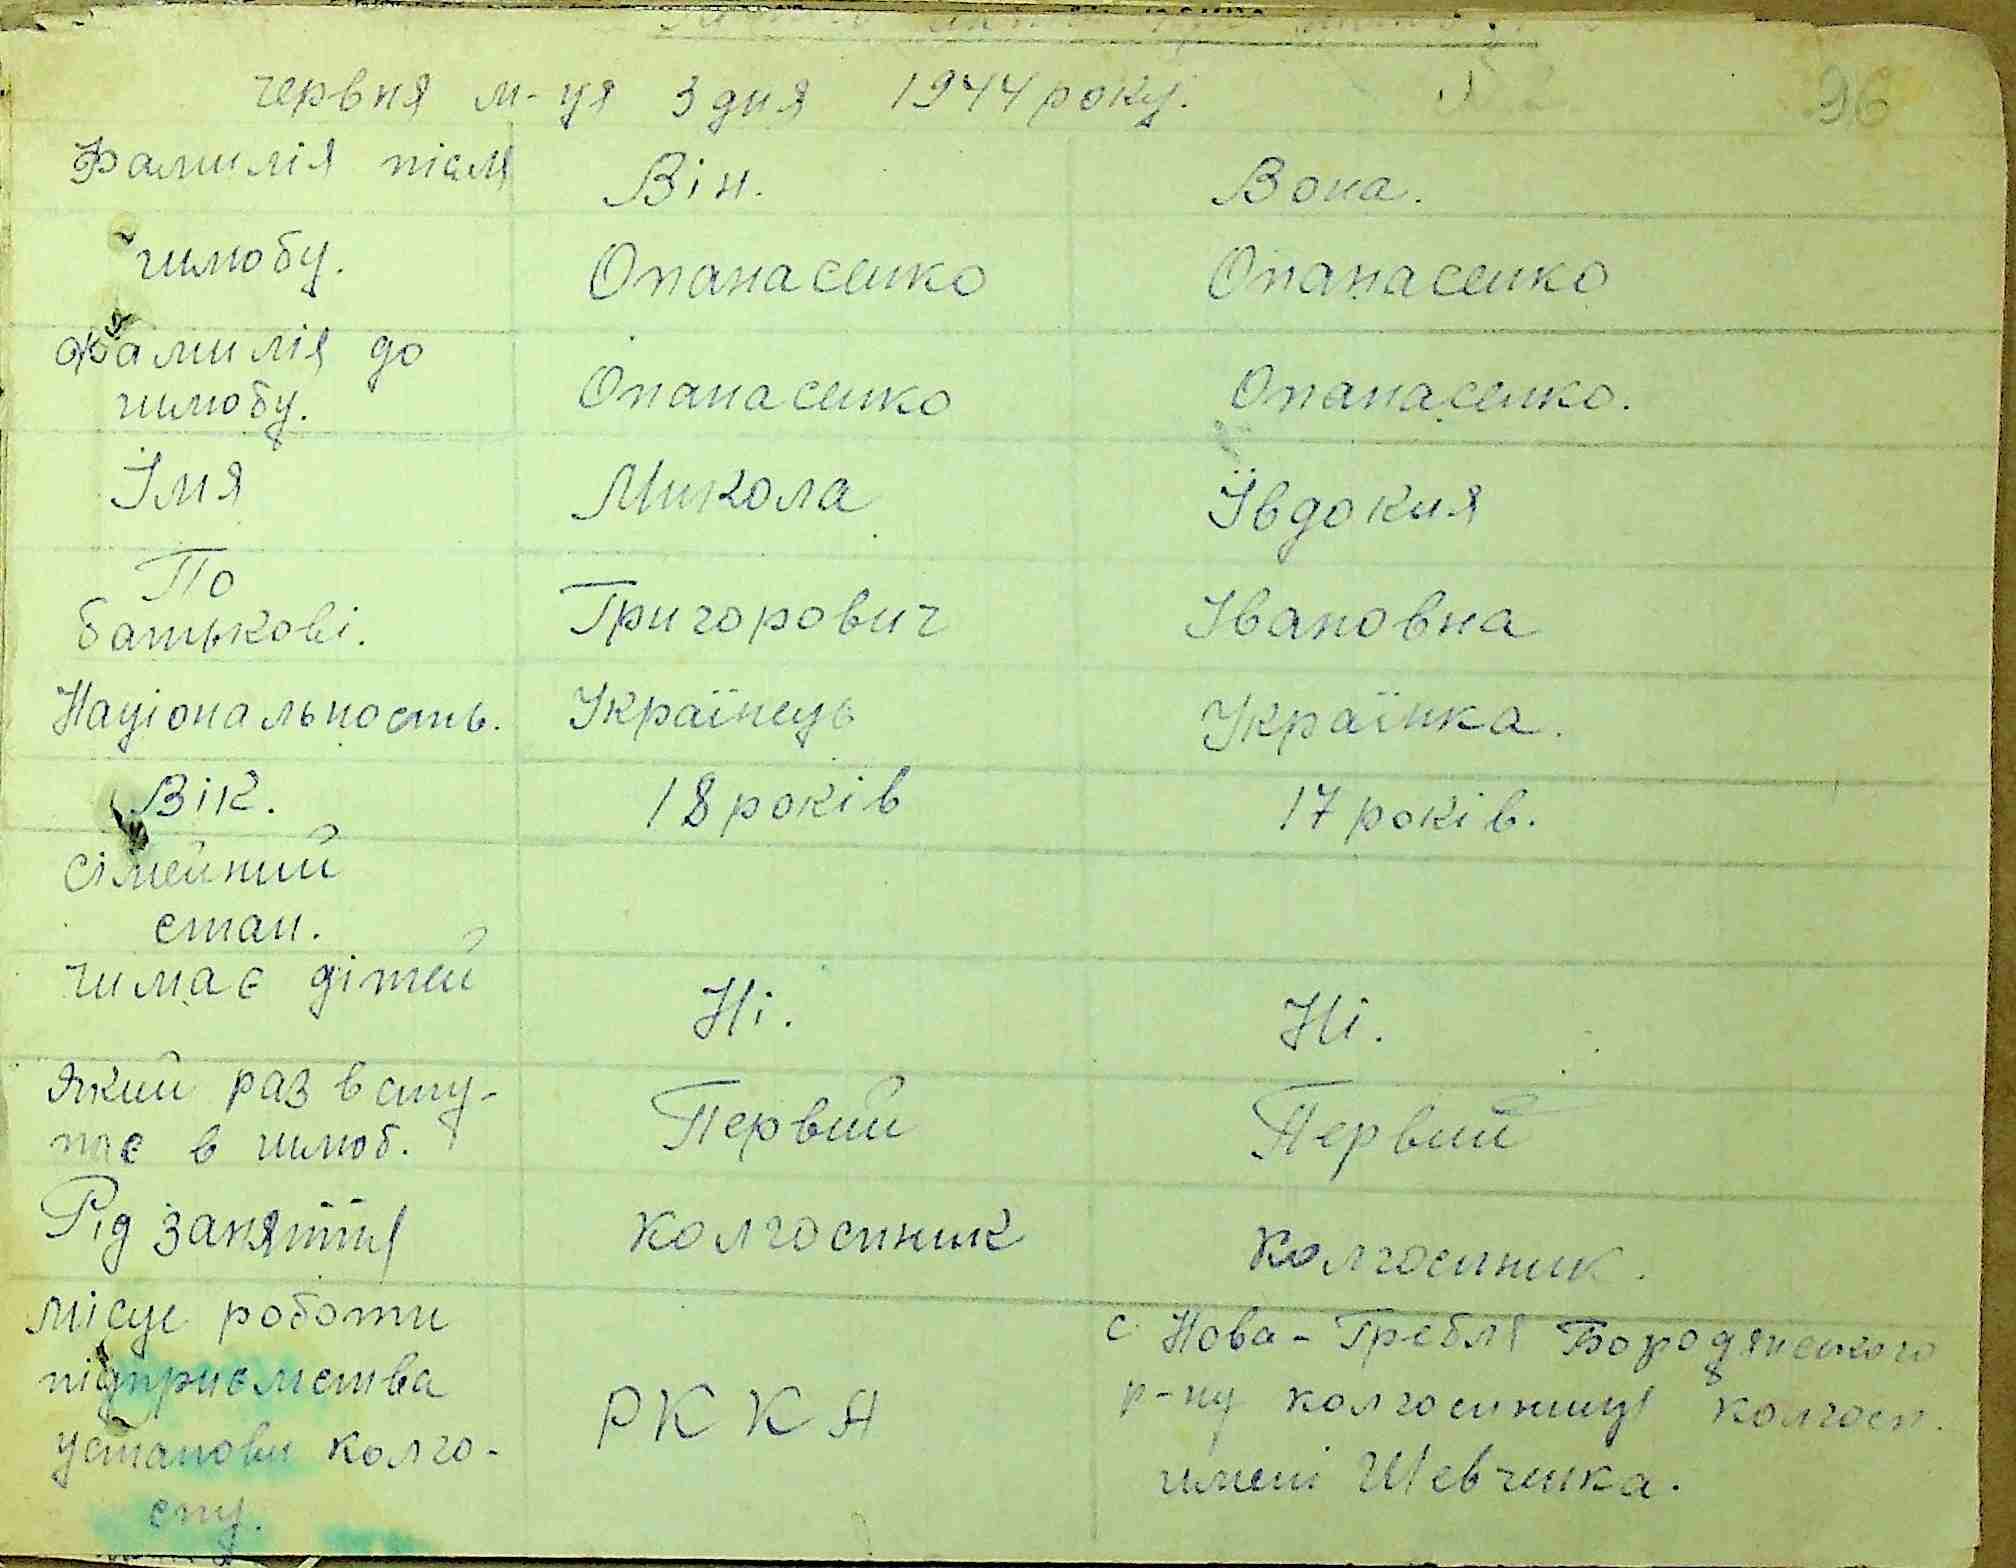 червня м-ця 3 дня 1944 року.
96
Фамилія після Він. Вона.
шлюбу. Опанасенко Опанасенко
Фамилія до
шлюбу. Опанасенко Опанасенко.
Імя Микола Ївдокия
По
батькові. Григорович Івановна
Національность. Українець Українка.
Вік. 18 років 17 років.
Сімейний
стан.
чи має дітей Ні. Ні.
який раз всту-
пає в шлюб. Первий Первий
Рід заняття колгоспник колгоспник.
місце роботи с. Нова-Гребля Бородянського
підприємства РККА р-ну колгоспниця колгосп.
установи колго- имені Шевчинка.
спу.